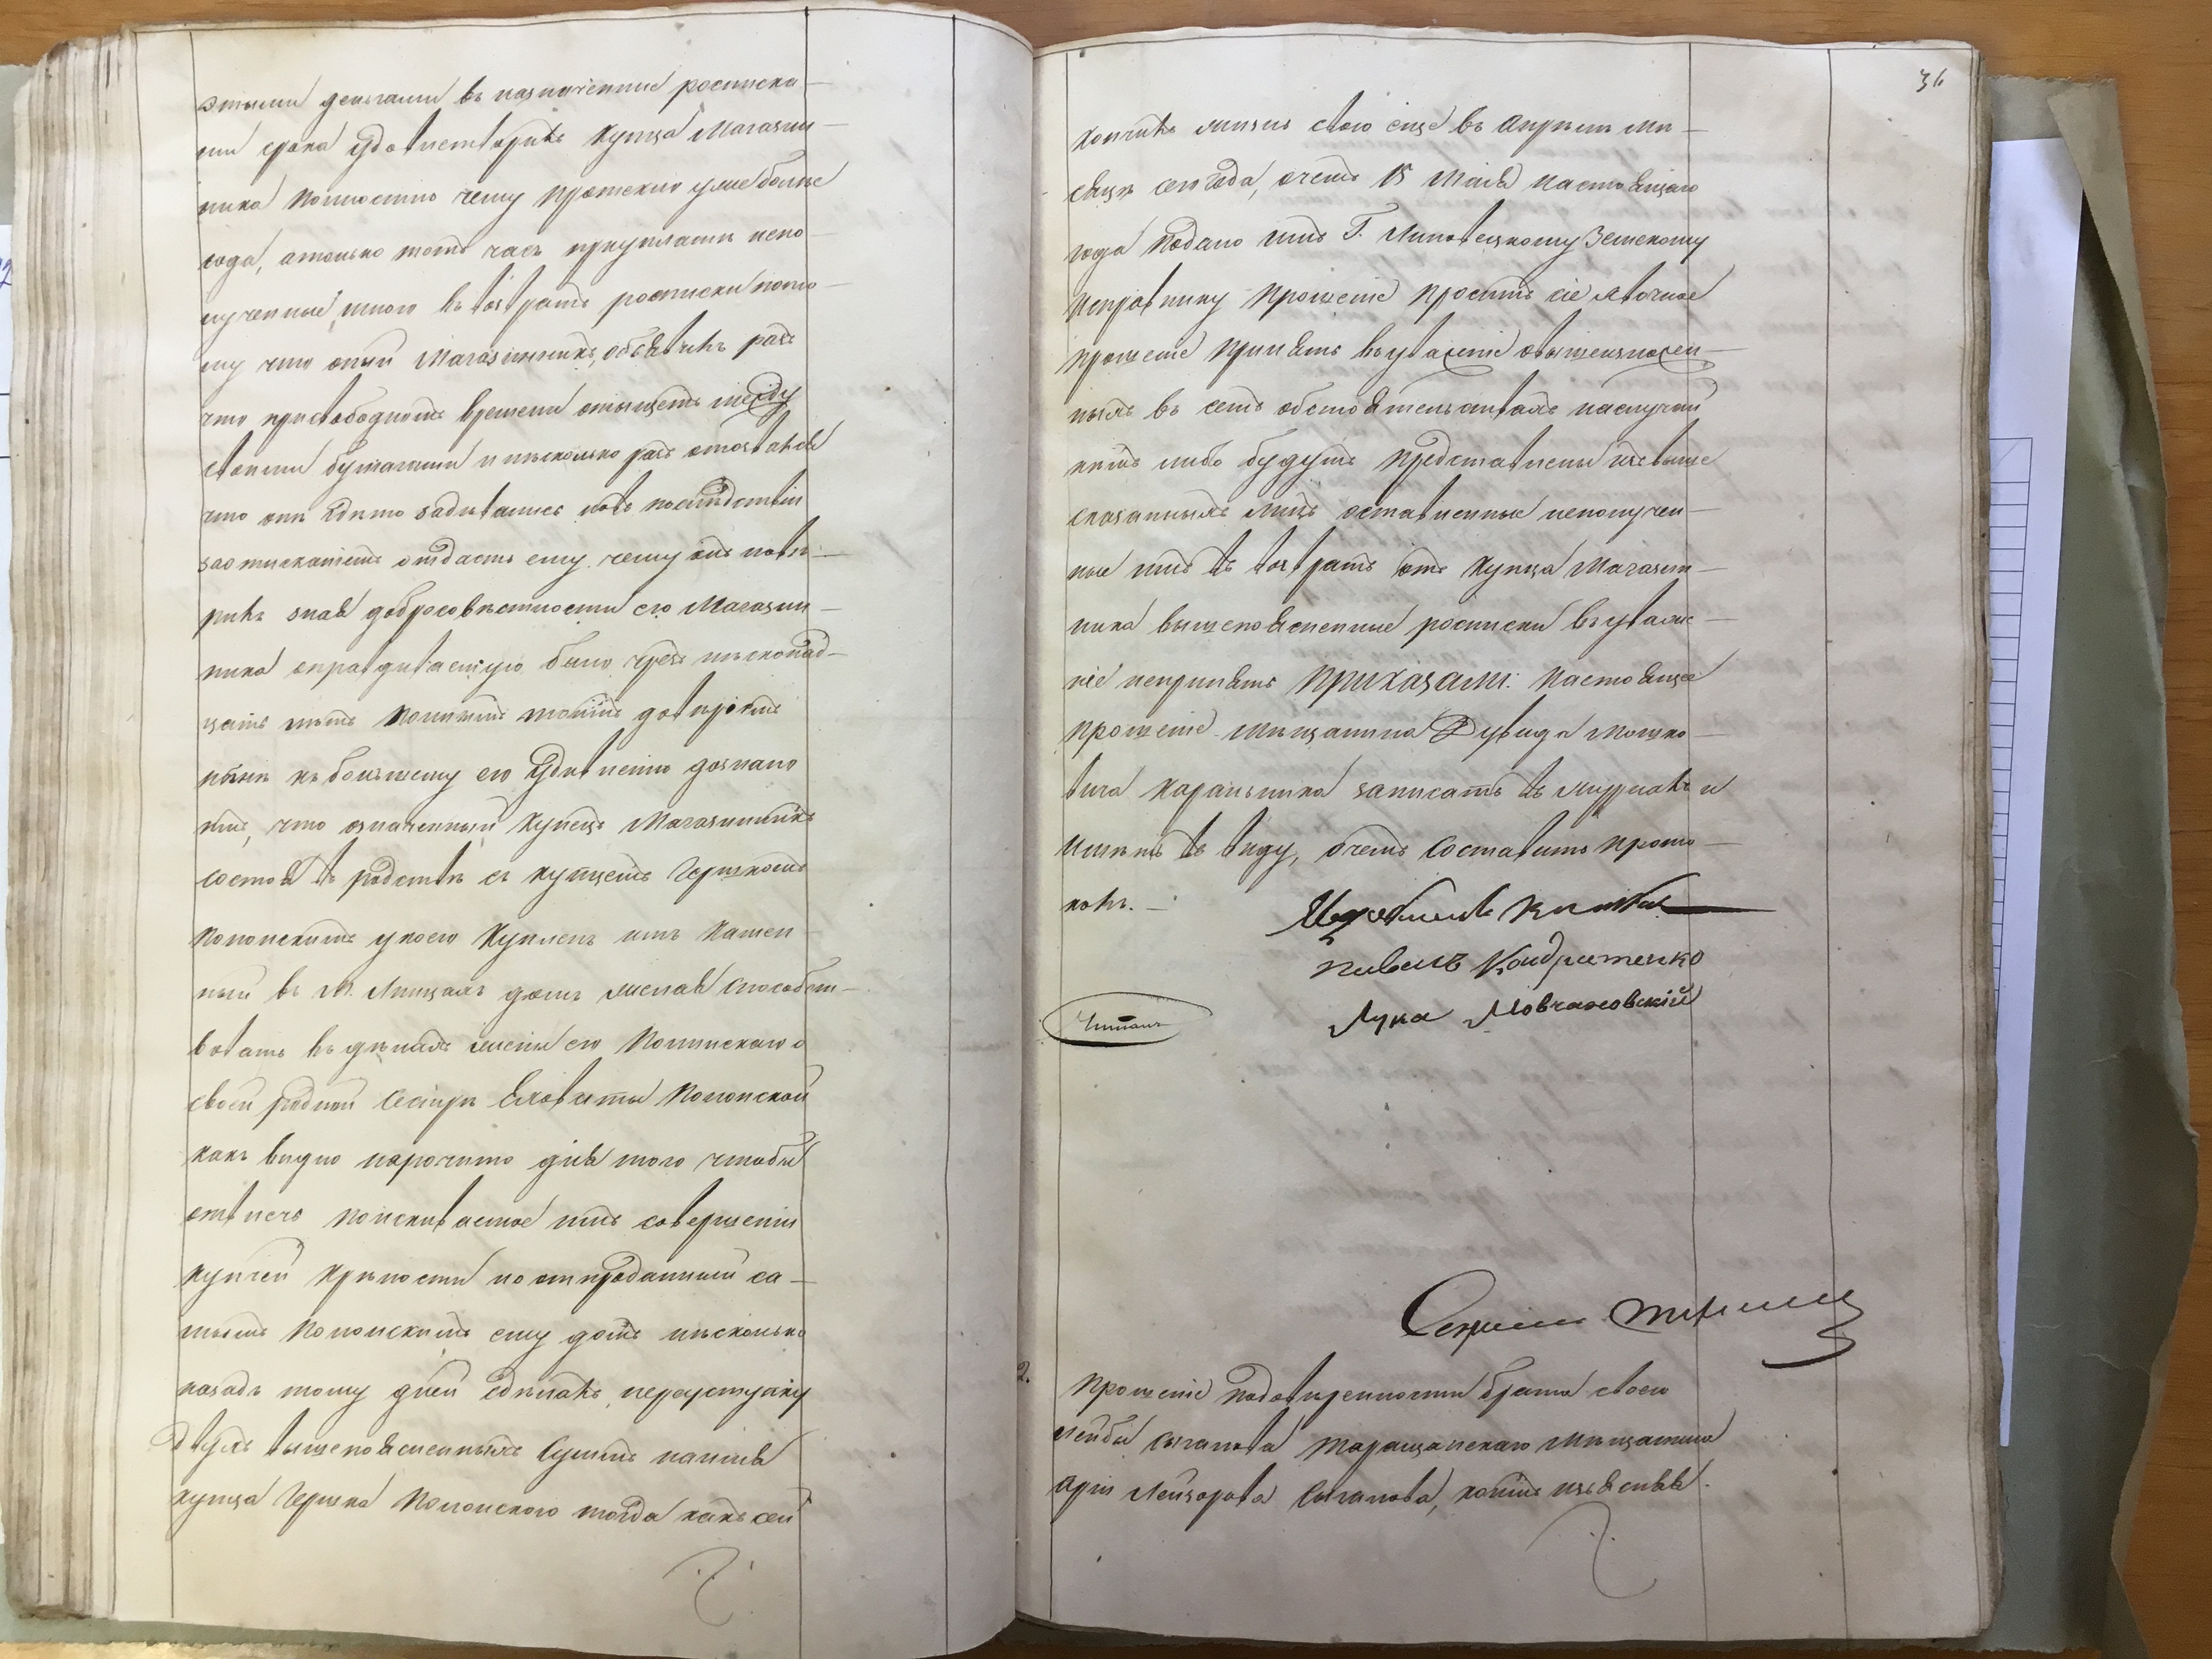 этыми деньгами въ назначенные росписка-
ми срока удовлетворилъ купца Магазин-
ника полностию чему протекло уже болѣе
года, атолько тотъ часъ приуплати непо-
лученные мною въ возвратъ росписки пото-
му что оный Магазинникъ, объявилъ разъ
что присвободномъ времени отыщетъ между
своими бумагами и нѣсколько разъ отозвался
что онѣ гдѣто задѣвались
заотисканіемъ отдастъ ему. чему онъ повѣ-
рилъ зная добросовѣстности его Магазин-
ника оправдиваемую было чрезъ нѣскольконад-
цать лѣтъ
нынѣ къ большему его удивленію дознано
имъ, что означенный купецъ Магазинникъ
состоя въ родствѣ съ купцемъ Гершкомъ
Полонскимъ укоего купленъ имъ камен-
ный въ М. Липцахъ домъ желая способст-
вовать въ дѣлахъ жены его Полонскаго а
своей родной сестры Полонской
какъ видно нарочито для того чтобы
отвлечь поискиваемое имъ совершенія
купчей крѣпости на отпроданный са-
мымъ Полонскимъ ему домъ нѣсколько
назадъ тому дней сдѣлалъ переуступку
двухъ вышепоясненныхъ суммъ на имя
купца Гершка Полонского тогда какъ сей
36
кончилъ жизнь свою еще въ Апрѣлѣ мѣ-
сяцѣ сего года, очемъ 15 Мая настоящаго
года подано имъ Г. Липовецкому Земскому
Исправнику прошеніе проситъ сіе явочное
прошеніе принять въуваженіе овышеизложен-
ныхъ въ семъ обстоятельствахъ наслучай
кѣмъ либо будутъ представлены изъвыше
сказанныхъ лицъ оставленные неполучен-
ные имъ въ возвратъ отъ купца Магазин-
ника вышепоясненные росписки въуваже-
ніе непринять приказали: настоящее
прошеніе мѣщанина Дувида Мошко-
вича Каральника записать въ журналъ и
имѣть въ виду, очемъ составить прото-
колъ. -
Павелъ Кондратенко
Лука Мовчановскій
Читалъ
2.
Прошеніе подовѣренности брата своего
Лейбы Сыганова Таращанскаго мѣщанина
Арія Лейзорова Сыганова, коимъ изъясняя